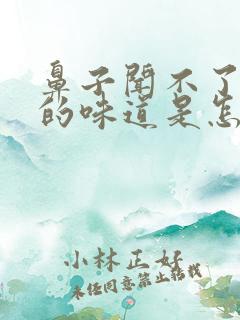 鼻子闻不了
的味道是怎
小林正好
未经同意禁止转载